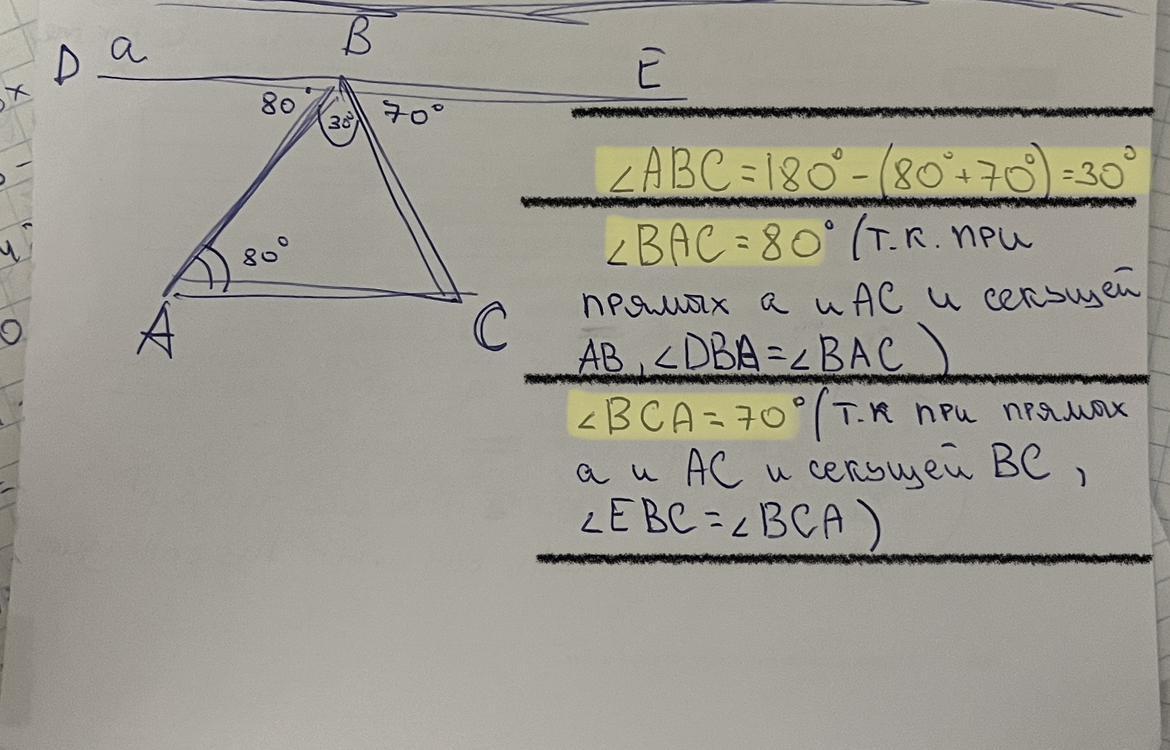 D a B E
80° 30° 70°
80°
A C
∠ABC=180°-(80°+70°)=30°
∠BAC=80° (т.к. при
прямых a и AC и секущей
AB, ∠DBA=∠BAC)
∠BCA=70° (т.к при прямых
a и AC и секущей BC,
∠EBC=∠BCA)